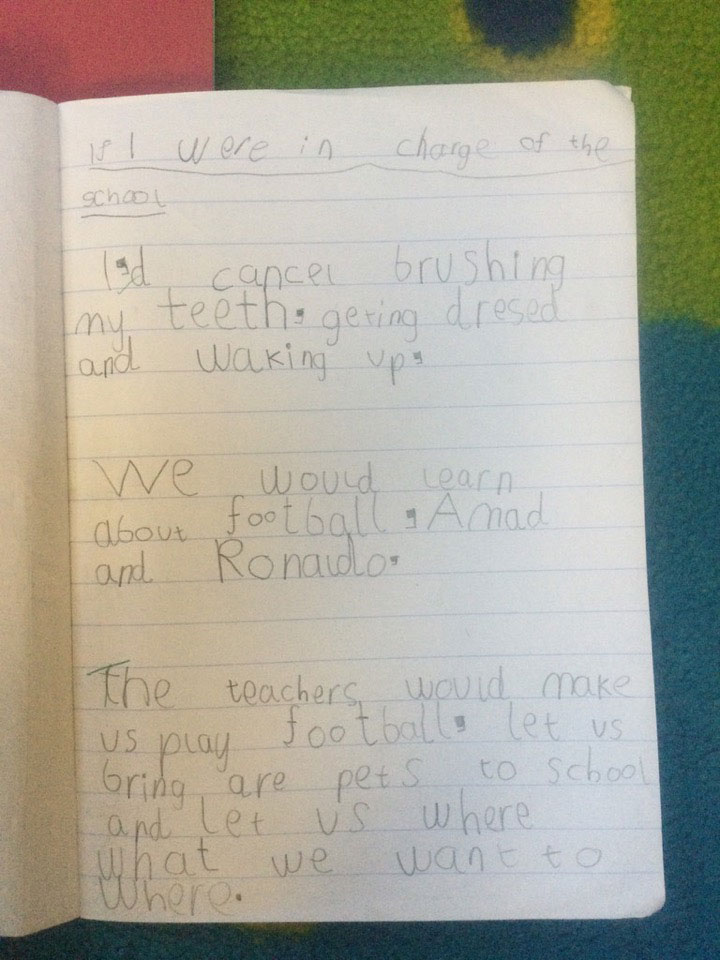 If I were in charge of the
school
I'd cancel brushing
my teeth, geting dresed
and waking up.
We would learn
about football, Amad
and Ronaldo.
The teachers would make
us play football, let us
bring are pets to school
and let us where
what we want to
where.